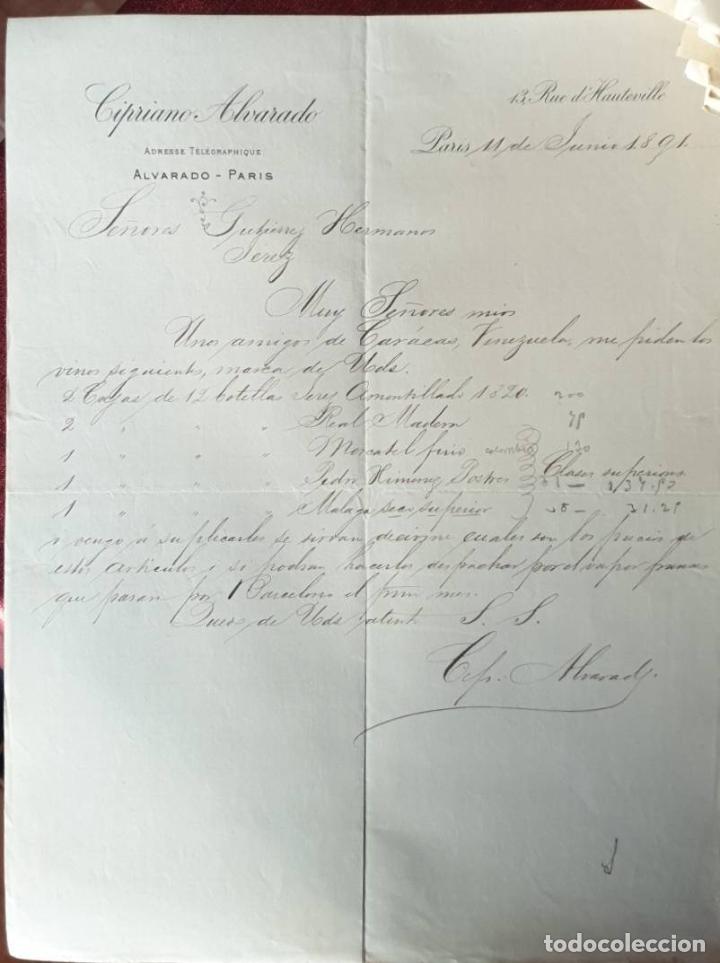 Cipriano Alvarado
13, Rue d'Hauteville
ADRESSE TÉLÉGRAPHIQUE
ALVARADO - PARIS
Paris 11 de Junio 1891.
Señores Gutierrez Hermanos
Jerez
Muy Señores mios
Unos amigos de Carácas, Venezuela, me piden los
vinos siguientes, marca de Uds.
2 Cajas de 12 botella Jerez Amontillado 1820. 200
2 " " " Real Madera 75
1 " " " Moscatel fino 120
1 " " " Pedro Ximenez Clases superiores
1 " " " Malaga seco superior
i vengo á suplicarles se sirvan decirme cuales son los precios de
estos artículos i si podran hacerlos despachar por el vapor
que pasara por Barcelona el mes.
de Uds S. S.
Cip. Alvarado
todocoleccion
todocoleccion.net